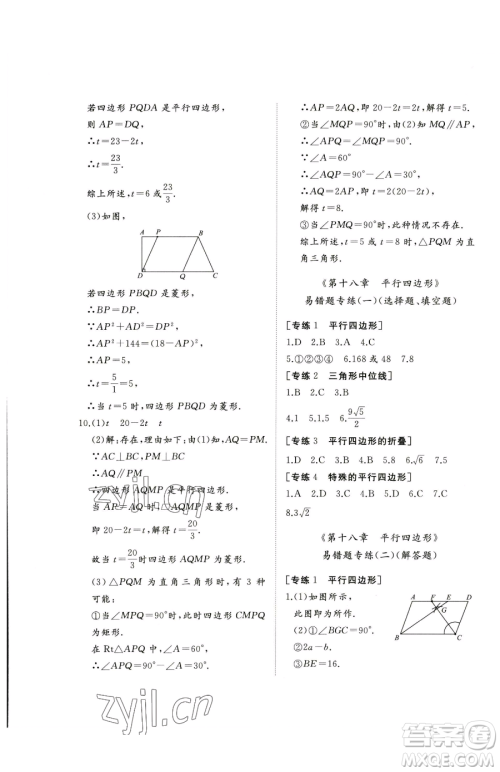 若四边形 PQDA 是平行四边形,
则 AP=DQ.
∴t=23-2t,
∴t=23/3.
综上所述,t=6 或 23/3.
(3)如图,
A P B
D Q C
若四边形 PBQD 是菱形,
∴BP=DP.
∴AP²+AD²=DP²,
∴AP²+144=(18-AP)²,
∴AP=5,
∴t=5/1=5,
∴当 t=5 时,四边形 PBQD 是菱形.
10.(1)t 20-2t t
(2)解:存在.由(1)知,AQ=PM.
∵AC⊥BC,PM⊥BC,
∴AQ∥PM,
∴四边形 AQMP 是平行四边形.
当 AP=AQ 时,▱AQMP 是菱形,
即 20-2t=t,解得 t=20/3.
故当 t=20/3 时,四边形 AQMP 为菱形.
(3)△PQM 为直角三角形,有 3 种
可能:
①当∠MPQ=90°时,此时四边形 CMPQ
为矩形.
在 Rt△APQ 中,∠A=60°,
∴∠APQ=90°-∠A=30°.
∴AP=2AQ,即 20-2t=2t,解得 t=5.
②当∠MQP=90°时,由(2)知 MQ∥AP,
∴∠APQ=∠MQP=90°.
∵∠A=60°
∴∠AQP=90°-∠A=30°,
∴AQ=2AP,即 t=2(20-2t),
解得 t=8.
③当∠PMQ=90°时,此种情况不存在.
综上所述,当 t=5 或 t=8 时,△PQM 为直
角三角形.
《第十八章 平行四边形》
易错题专练(一)(选择题、填空题)
[专练 1 平行四边形]
1.D 2.B 3.A 4.C
5.①②③④ 6.168 或 48 7.8
[专练 2 三角形中位线]
4.1 5.1.5 6.9√5/2
[专练 3 平行四边形的折叠]
1.D 2.C 3.C 4.B 5.√6 6.6
[专练 4 特殊的平行四边形]
1.B 2.B 3.B 4.D 5.D 6.A 7.8
8.3√2
《第十八章 平行四边形》
易错题专练(二)(解答题)
[专练 1 平行四边形]
1.(1)如图所示,
即为所作.
(2)①∠BGC=90°.
②2a-b.
③BE=16.
A F E D
G
B C
zyjl.cn
zyjl.cn
答案圈
MXQE.COM